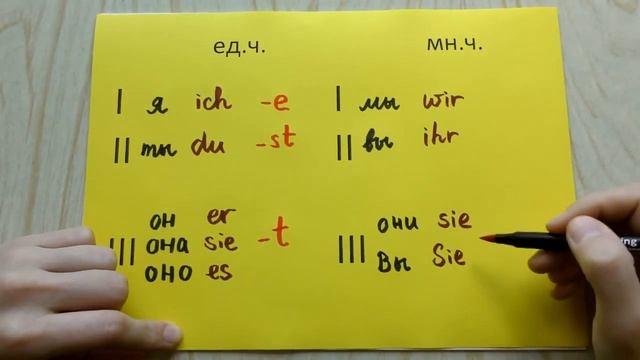 ед.ч. мн.ч.
I я ich -e I мы wir
II ты du -st II вы ihr
он er они sie
III она sie -t III
оно es Вы Sie